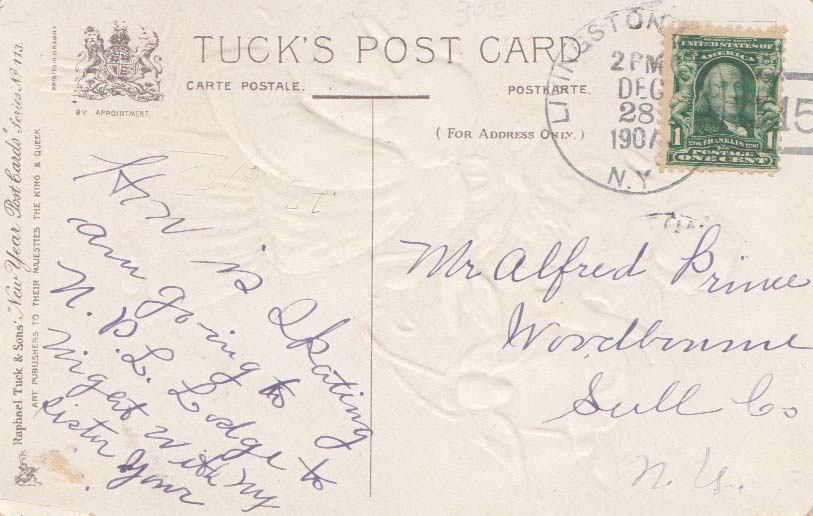 TUCK'S POST CARD
CARTE POSTALE.
POSTKARTE.
(FOR ADDRESS ONLY.)
BY APPOINTMENT
PRINTED IN SAXONY
Raphael Tuck & Sons' "New Year Post Cards" Series No 113.
ART PUBLISHERS TO THEIR MAJESTIES THE KING & QUEEN
LIVINGSTON
2 PM
DEC
28
1907
N.Y.
15
SERIES 1902
UNITED STATES OF
AMERICA
1 1
1706 FRANKLIN 1790
POSTAGE
ONE CENT
is Skating
am going to
N. P. L. Lodge to
night with my
sister Your
Mr Alfred Prince
Woodbourne
Sull Co
N. Y.